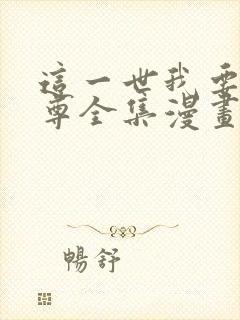 這一世我要
尊全集漫畫
暢舒